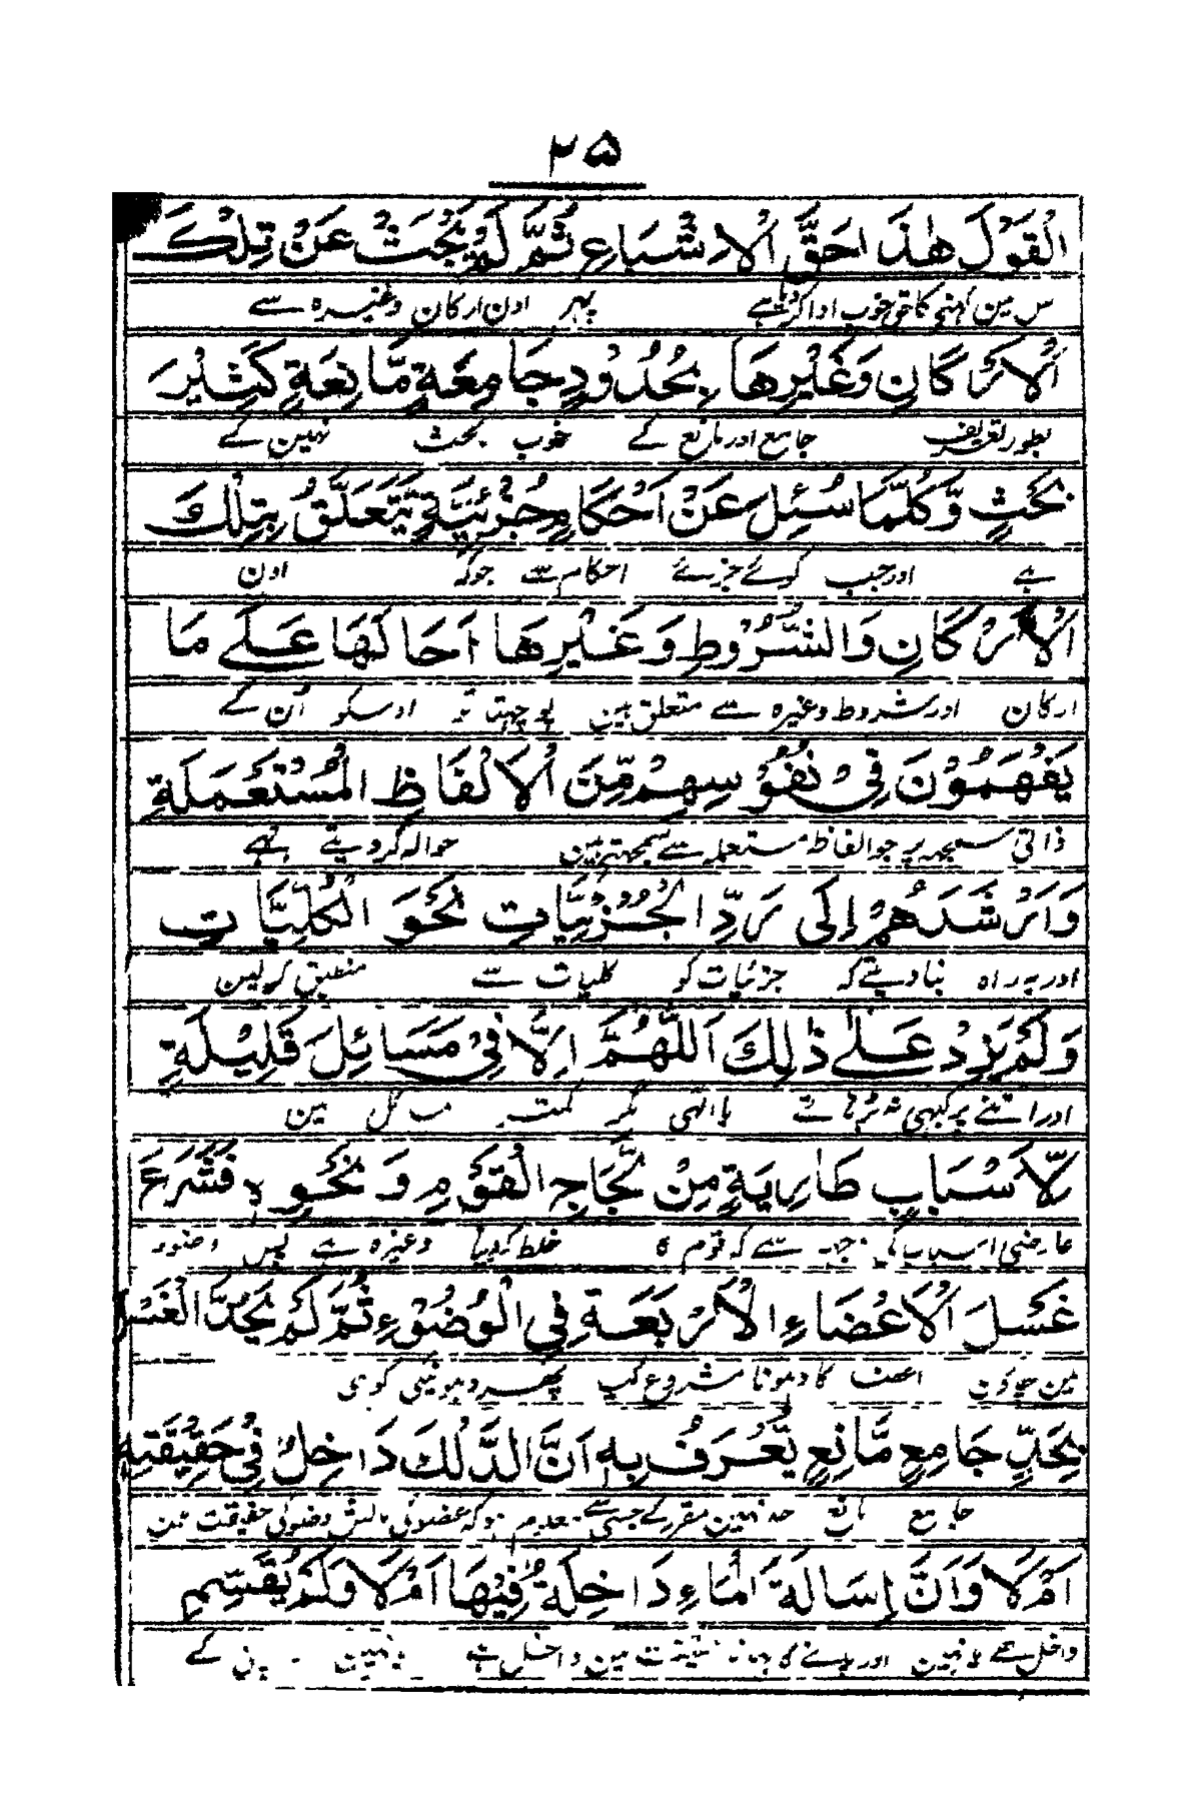 ۲۵
الْقَوْلَ هٰذَا حَقَّ الْاِشْبَاعِ ثُمَّ لَمْ يَبْحَثْ عَنْ تِلْكَ
س مین کہنے کا حق خوب ادا کر دیا ہے پہر اون ارکان وغیرہ سے
الْاَرْكَانِ وَغَيْرِهَا بِحُدُوْدٍ جَامِعَةٍ مَّانِعَةٍ كَثِيْرَ
بطور تعریف جامع اور مانع کے خوب بحث نہین کے
بَحْثٍ وَّكُلَّمَا سُئِلَ عَنْ اَحْكَامٍ جُزْئِيَّةٍ تَتَعَلَّقُ بِتِلْكَ
ہے اور جب کوئے جزئے احکام سے جو کہ اون
الْاَرْكَانِ وَالشُّرُوْطِ وَغَيْرِهَا اَحَالَهَا عَلٰى مَا
ارکان اور شروط وغیرہ سے متعلق ہین پوچہتے تو اوسکو اُن کے
يَفْهَمُوْنَ فِيْ نُفُوْسِهِمْ مِّنَ الْاَلْفَاظِ الْمُسْتَعْمَلَةِ
ذاتی سمجہہ پر جو الفاظ مستعملہ سے سمجہتے ہین حوالہ کر دیتے تہے
وَاَرْشَدَهُمْ اِلٰى رَدِّ الْجُزْئِيَّاتِ نَحْوَ الْكُلِّيَّاتِ
اور یہ راہ بتا دیتے کہ جزئیات کو کلیات سے منطبق کر لین
وَلَمْ يَزِدْ عَلٰى ذٰلِكَ اَللّٰهُمَّ اِلَّا فِيْ مَسَائِلَ قَلِيْلَةٍ
اور اتنے پر کبہی نہ بڑہاتے یا الٰہی مگر کمتر مسائل مین
لِّاَسْبَابٍ طَارِيَةٍ مِنْ لُّجَاجِ الْقَوْمِ وَ نَحْوِهٖ فَشَرَعَ
عارضی اسباب کی وجہہ سے کہ قوم کا خلط کر دینا وغیرہ ہے پس وضو
غَسْلَ الْاَعْضَاءِ الْاَرْبَعَةِ فِي الْوُضُوْءِ ثُمَّ لَمْ يَحُدَّ الْغَسْلَ
مین چارون اعضا کا دہونا مشروع کیا پھر دہونیکی کوئی
بِحَدٍّ جَامِعٍ مَّانِعٍ يُّعْرَفُ بِهٖ اَنَّ الدَّلْكَ دَاخِلٌ فِيْ حَقِيْقَتِهٖ
جامع مانع حد نہین مقرر کے جس سے معلوم ہو کہ عضو کی مالش وضو کی حقیقت مین
اَمْ لَا وَاَنَّ اِسَالَةَ الْمَاءِ دَاخِلَةٌ فِيْهَا اَمْ لَا وَلَمْ يُقَسِّمِ
داخل ہے یا نہین اور پانی کا بہانا حقیقت مین داخل ہے یا نہین پانی کے